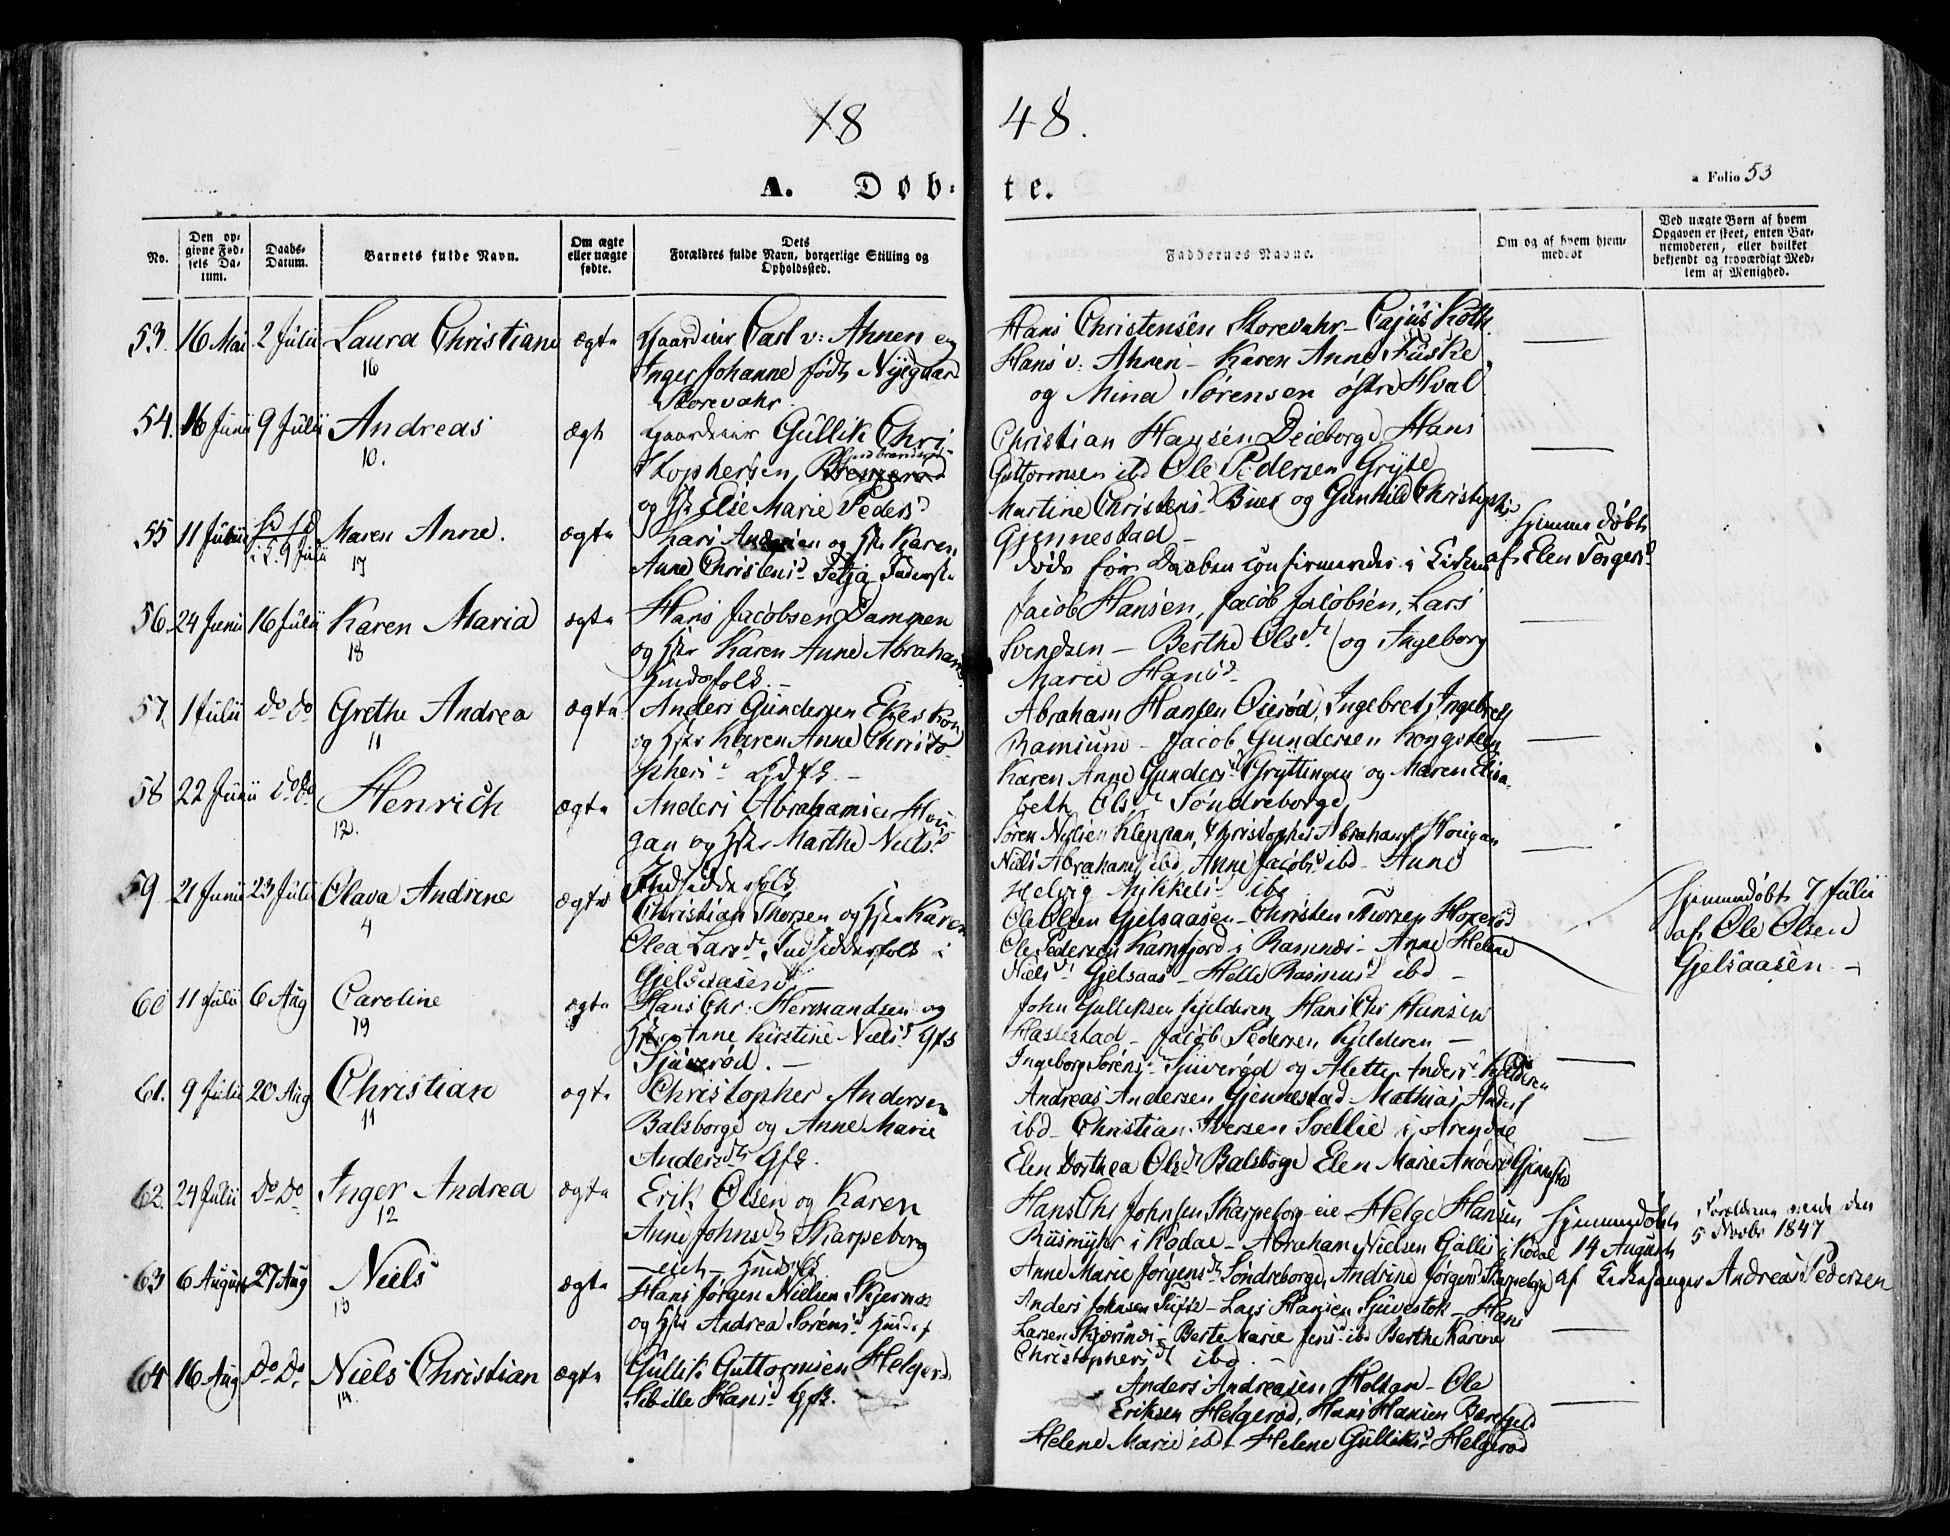 18 48.
A. Døb- te.
a Folio 53
No.
Den op-
givne Fød-
sels Da-
tum.
Daabs-
Datum.
Barnets fulde Navn.
Om ægte
eller uægte
fødte.
Dets
Forældres fulde Navn, borgerlige Stilling og
Opholdssted.
Faddernes Navne.
Om og af hvem hjem-
medøbt
Ved uægte Børn af hvem
Opgaven er skeet, enten Bar-
nemoderen, eller hvilket
bekjendt og troværdigt Med-
lem af Menighed.
53. 16 Mai 2 Julii Laura Christiane ægte
16
Gaardeier Carl v: Ahnen og
Inger Johanne født Nyegaard
Storevahr.
Hans Christensen Storevahr - Cajus Koth.
Hans v. Ahnen - Karen Anne Fuske
og Mina Sørensen østre Hval
54. 16 Junii 9 Julii Andreas ægte
10.
Gaardeier Gullik Chri-
stophersen
og Elsie Marie Peders
Christian Hansen Deieborge Hans
Guttormsen ibd Ole Pedersen Gryte
Martine Christens Buer og Gunhild
Gjennestad -
55 11 Julii Maren Anne. ægte
i K. 9 Julii
17
Andersen og Karen
Anne Christens
døde før Daaben confirmeredes i Kirken
Hjemmedøbt
af Elen Torgers
56. 24 Junii 16 Julii Karen Maria ægte
18
Hans Jacobsen Dammen
og Karen Anne Abrahams
Huusfolk. -
Jacob Hansen, Jacob Jacobsen, Lars
Svendsen - Berthe Ols og Ingeborg
Marie Hans
57. 1 Julii do do Grethe Andrea ægte
11
Anders Gundersen
og Karen Anne Christo-
phers
Abraham Hansen Oserød, Ingebret Ingebrets
Ramsum - Jacob Gundersen
Karen Anne Gunders Gryttingen og Maren Elisa-
beth Ols Søndreborge
58 22 Junii do do Henrich ægte
12.
Anders Abrahamsen Hou-
gan og Marthe Niels
Indsidderfolk
Søren Nielsen Kleppan, Christopher Abrahams Hougan
Niels Abrahams ibd, Anne Jacobs ibd - Anne
Helvig Mikkels ibd
59 21 Junii 23 Julii Olava Andrine ægte
4
Christian Thorsen og Karen
Olea Lars Indsidderfolk i
Gjelsaasen
Ole Olsen Gjelsaasen - Christen Thorsen
Ole Pedersen Kamfjord i Ramnæs - Anne Helene
Niels Gjelsaas - Helle Rasmus ibd -
Hjemmedøbt 7 Julii
af Ole Olsen
Gjelsaasen -
60 11 Julii 6 Aug Caroline ægte
19
Hans Chr: Hermandsen og
Anne Kirstine Niels Gfk
Sjuverød. -
John Gulliksen Kjelderen, Hans Chr Hansen
Haslestad - Jacob Pedersen Kjelderen -
Ingeborg Sørens Sjuverød og Mette Anders Kjelderen
61. 9 Julii 20 Aug Christian ægte
11
Christopher Andersen
Balsborge og Anne Marie
Anders Gfk.
Andreas Andersen Gjennestad Mathias Anders
ibd - Christian Iversen Soellie i Arendal
Elen Dorthea Ols Balsborge Elen Marie Anders
62. 24 Julii do do Inger Andrea ægte
12
Erik Olsen og Karen
Anne Johns Skarpeborg
eie - Huusfk
Hans Chr Johnsen Skarpeborg - eie - Helge Hansen
Riismyhr i Kodal - Abraham Nielsen Gallis i Kodal
Anne Marie Jørgens Søndreborge, Andrine Jørgens Skarpeborg
Hjemmedøbt
14 August
af Kirkesanger Andreas Pedersen
Forældrene viede den
5 Novbr 1847
63 6 August 27 Aug Niels ægte
13
Hans Jørgen Nielsen Skjernæs
og Andrea Sørens
Anders Johnsen - Lars Hansen Sjuvestok - Hans
Larsen Skjærsnæs - Berte Marie Jens ibd Berthe Karine
Christophers ibd. -
64 16 Aug do do Niels Christian ægte
14.
Gullik Guttormsen Helgerød
Sibille Hans Gfk.
Anders Andreasen Holtan - Ole
Eriksen Helgerød, Hans Hansen
Helene Marie ibd - Helene Gulliks Helgerød